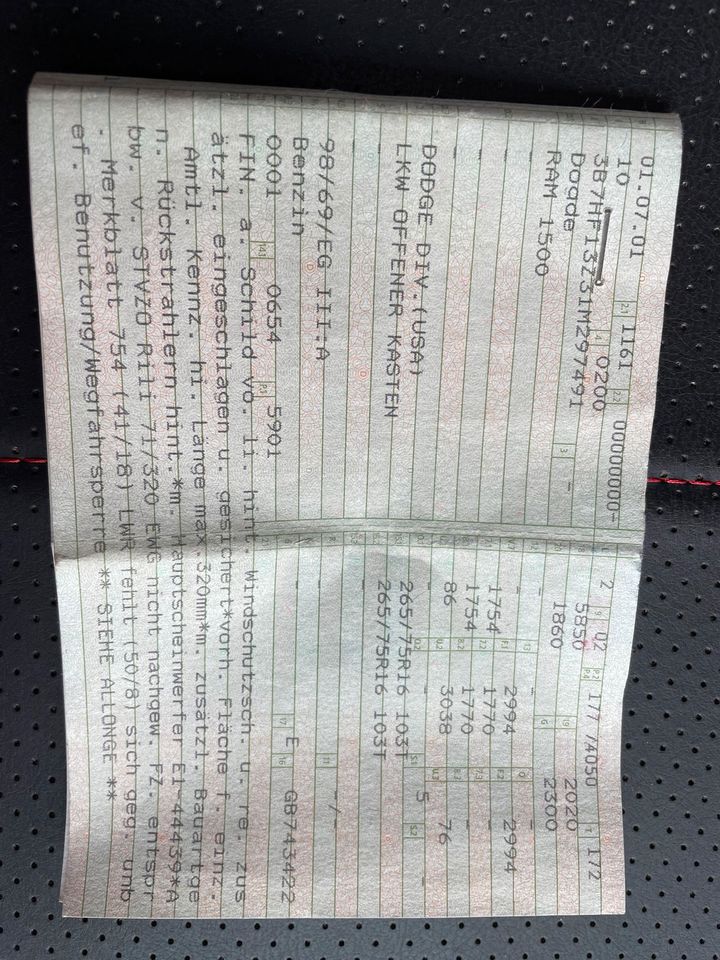 01.07.01 21 1161 22 00000000- L 2 9 02 P2 P4 177 /4050 T 172
10 4 0200 18 5850 19 2020
3B7HF13Z31M297491 3 - 20 1860 G 2300
Dogde - -
RAM 1500 - -
- 1754 2994 2994
- 1754 1770 -
- 86 1770 -
DODGE DIV.(USA) - 3038 76
LKW OFFENER KASTEN 265/75R16 103T 5 -
- 265/75R16 103T
98/69/EG III:A - -/-
Benzin - E 16 GB743422
0001 14.1 0654 P.1 5901
FIN. a. Schild vo. li. hint. Windschutzsch. u. re. zus
ätzl. eingeschlagen u. gesichert*vorh. Fläche f. einz.
Amtl. Kennz. hi. Länge max.320mm*m. zusätzl. Bauartge
n. Rückstrahlern hint.*m. Hauptscheinwerfer E1-44439*A
bw. v. STVZO Rili 71/320 EWG nicht nachgew. FZ. entspr
. Merkblatt 754 (41/18) LWR fehlt (50/8) sich geg. unb
ef. Benutzung/Wegfahrsperre ** SIEHE ALLONGE **